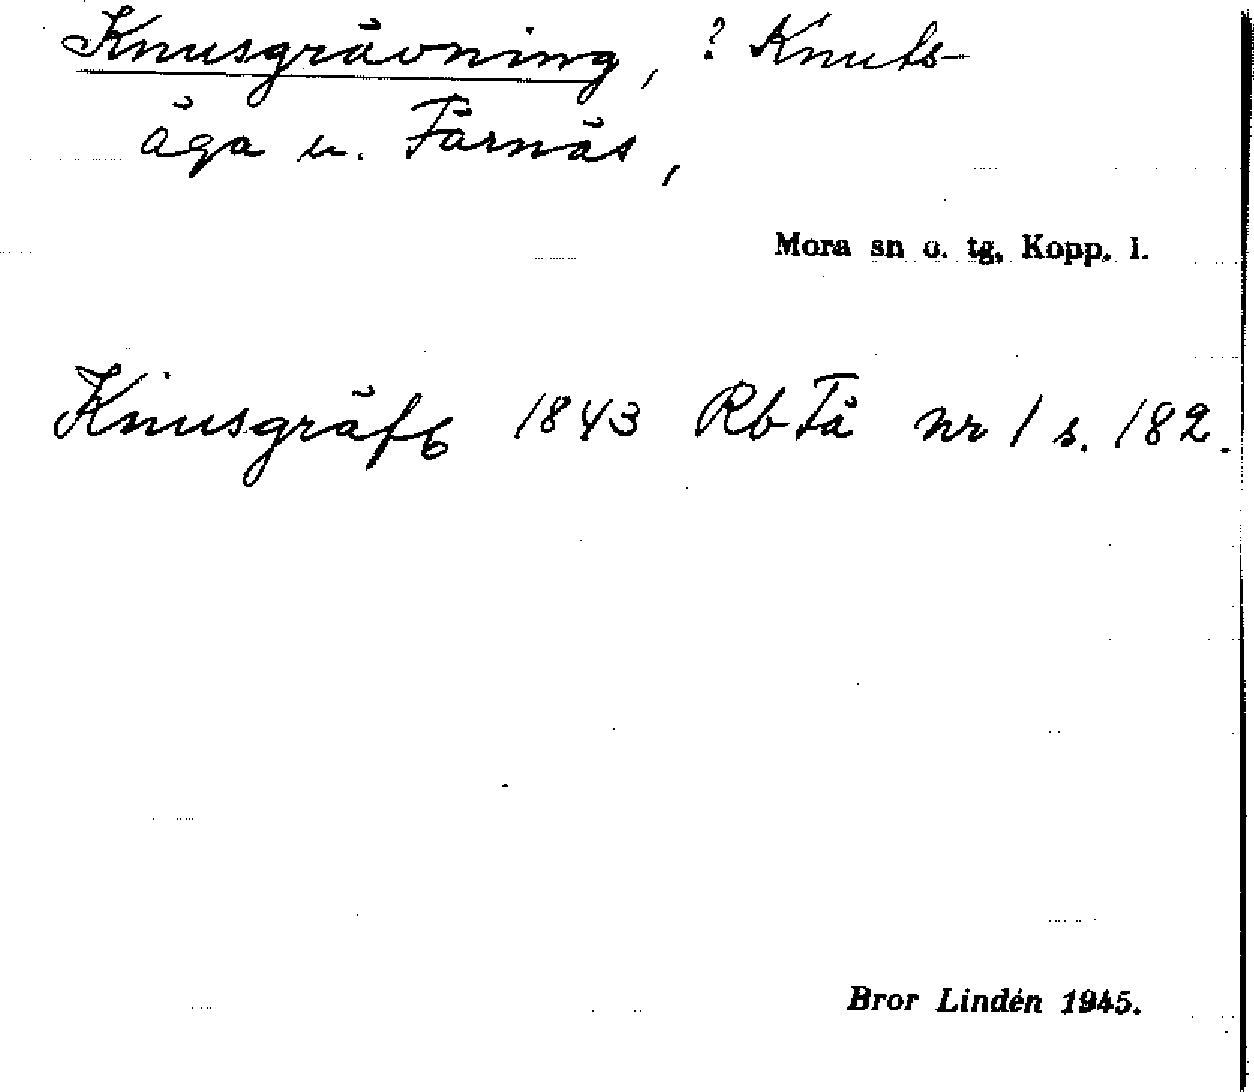 Knusgrävning, ? Knuts-
äga u. Färnäs,
Mora sn o. tg, Kopp. l.
Knusgräfb 1843 Rb Få nr 1 s. 182.
Bror Lindén 1945.